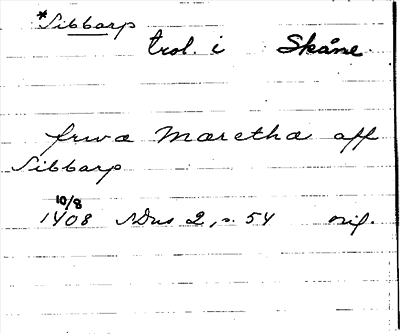 *Sibbarp
trol. i Skåne.
fruva Maretha aff
Sibbarp
10/8
1408 SDns 2, s. 54 orig.